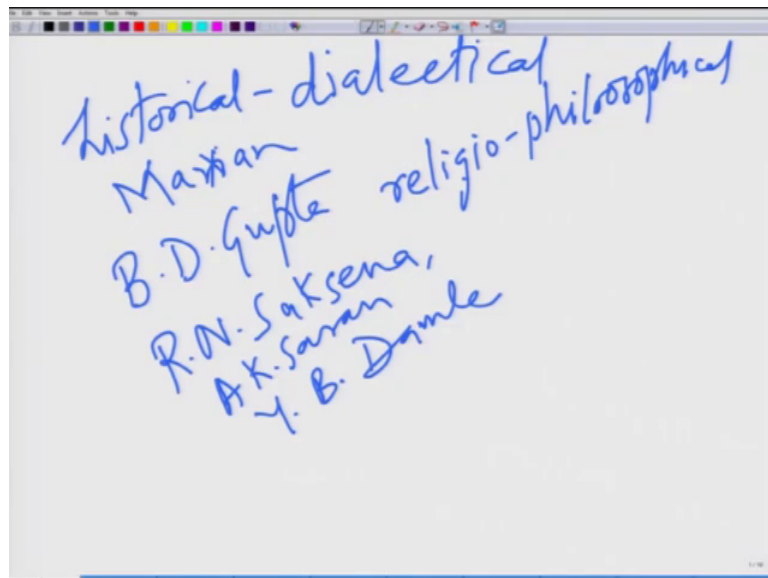 historical-dialectical
Marxian
B.D. Gupte religio-philosophical
R.N. Saksena,
A K. Saran
Y. B. Damle